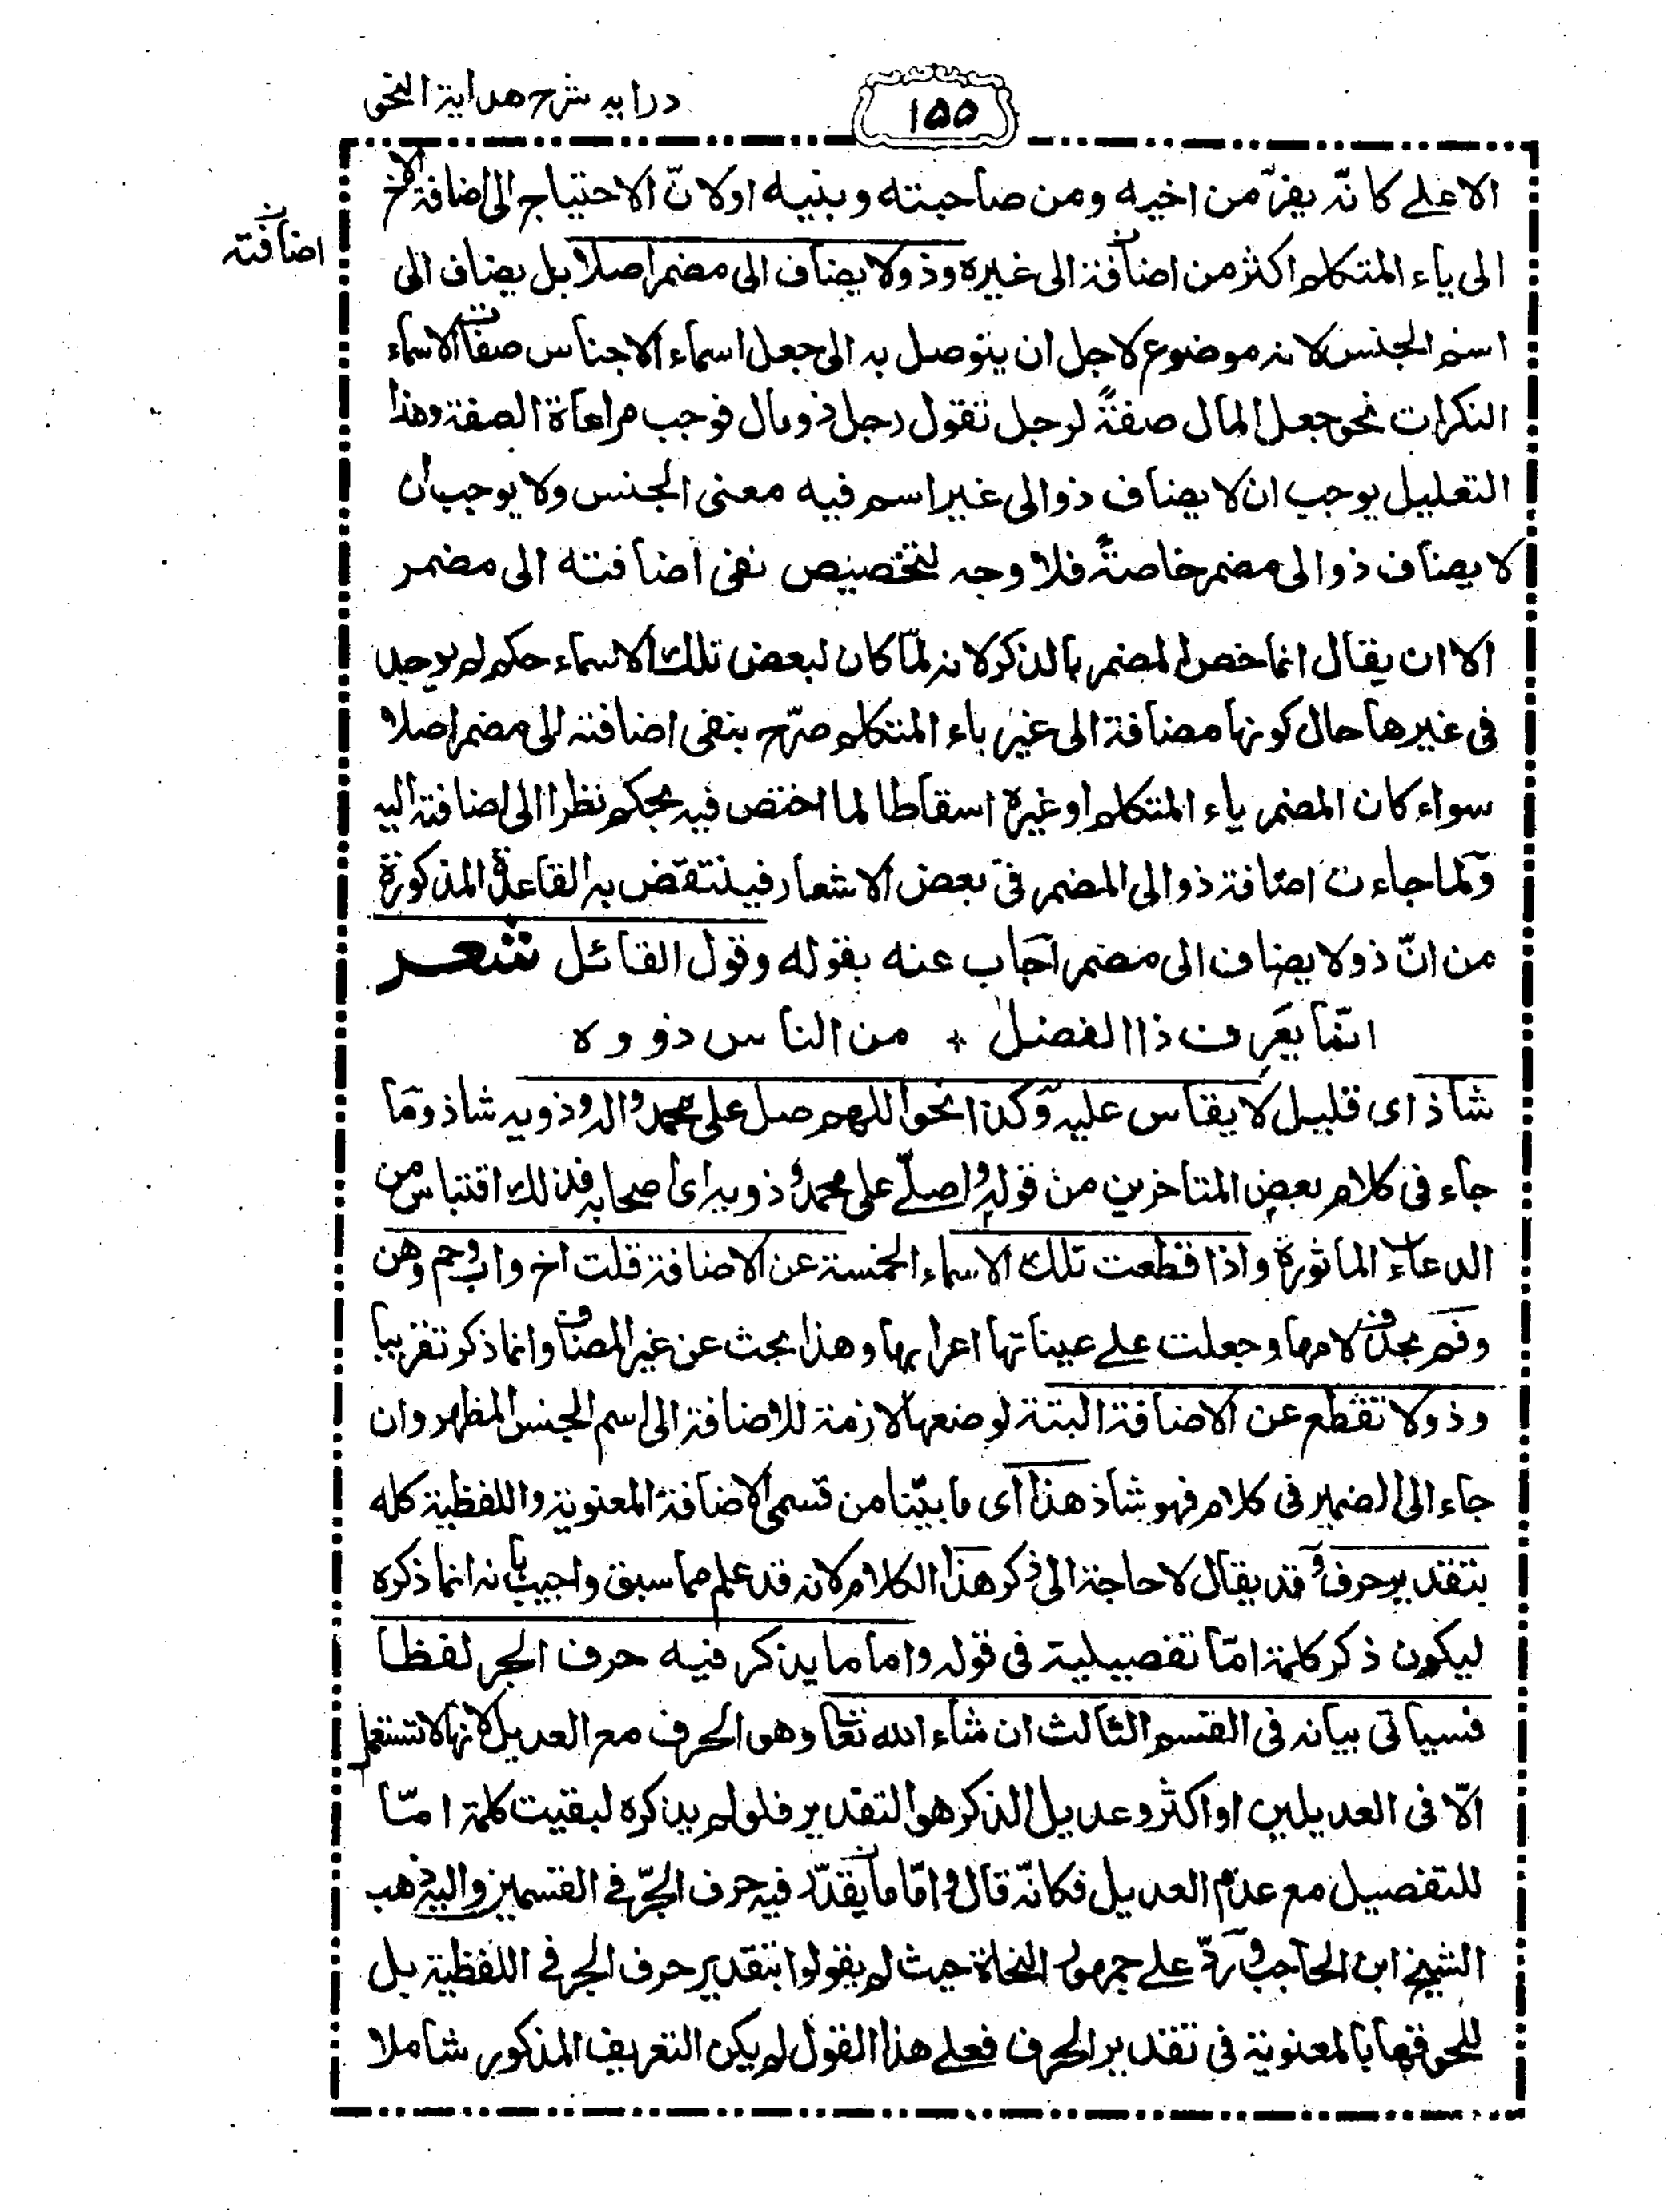 درايه شرح هداية النحو
١٥٥
الاعلے كانّه يفرّ من اخيه ومن صاحبته وبنيه اولانّ الاحتياج الى اضافة الاخ
اضافته
الى ياء المتكلم اكثر من اضافته الى غيره وذو لا يضاف الى مضمر اصلا بل يضاف الى
اسم الجنس لانه موضوع لاجل ان يتوصل به الى جعل اسماء الاجناس صفات الاسماء
النكرات نحو جعل المال صفةً لرجل تقول رجل ذو مال فوجب مراعاة الصفة وهذا
التعليل يوجب ان لا يضاف ذو الى غير اسم فيه معنى الجنس ولا يوجب ان
لا يضاف ذو الى مضمر خاصةً فلا وجه لتخصيص نفى اضافته الى مضمر
الا ان يقال انما خص المضمر بالذكر لانه لمّا كان لبعض تلك الاسماء حكم لم يوجد
فى غيرها حال كونها مضافة الى غير ياء المتكلم صرّح بنفى اضافته الى مضمر اصلا
سواء كان المضمر ياء المتكلم او غيره اسقاطا لما اختص فيه بحكم نظرا الى اضافته اليه
ولما جاءت اضافة ذو الى المضمر فى بعض الاشعار فينتقض به القاعدة المذكورة
من انّ ذو لا يضاف الى مضمر اجاب عنه بقوله وقول القائل شعر
انّما يعرف ذا الفضل + من الناس ذووه
شاذ اى قليل لا يقاس عليه وكذا نحو اللهم صل على محمد واله وذويه شاذ وما
جاء فى كلام بعض المتاخرين من قوله واصلّے على محمد وذويه اى اصحابه فذلك اقتباس من
الدعاء الماثورة واذا قطعت تلك الاسماء الخمسة عن الاضافة قلت اخ واب وحم وهن
وفم بحذف لامها وجعلت علے عيناتها اعرابها وهذا بحث عن غير المضاف وانما ذكر تقريبا
وذو لا تقطع عن الاضافة البتة لوضعها لازمة للاضافة الى اسم الجنس المظهر وان
جاء الى الضمير فى كلام فهو شاذ هذا اى ما بيّنا من قسمى الاضافة المعنوية واللفظية كله
بتقدير حرف وقد يقال لا حاجة الى ذكر هذا الكلام لانه قد علم مما سبق واجيب بانه انما ذكره
ليكون ذكر كلمة امّا تفصيلية فى قوله واما ما يذكر فيه حرف الجر لفظا
فسياتى بيانه فى القسم الثالث ان شاء الله تعا وهو الحرف مع العديل لانها لا تستعمل
الّا فى العديلين او اكثر وعديل الذكر هو التقدير فلو لم يذكره لبقيت كلمة امّا
للتفصيل مع عدم العديل فكانّه قال وامّا ما يقدّر فيه حرف الجرّ فے القسمين واليه ذهب
الشيخ ابن الحاجب وردّ علے جمهور النحاة حيث لم يقولوا بتقدير حرف الجر فے اللفظية بل
للحوقها بالمعنوية فى تقدير الحرف فعلے هذا القول لم يكن التعريف المذكور شاملا